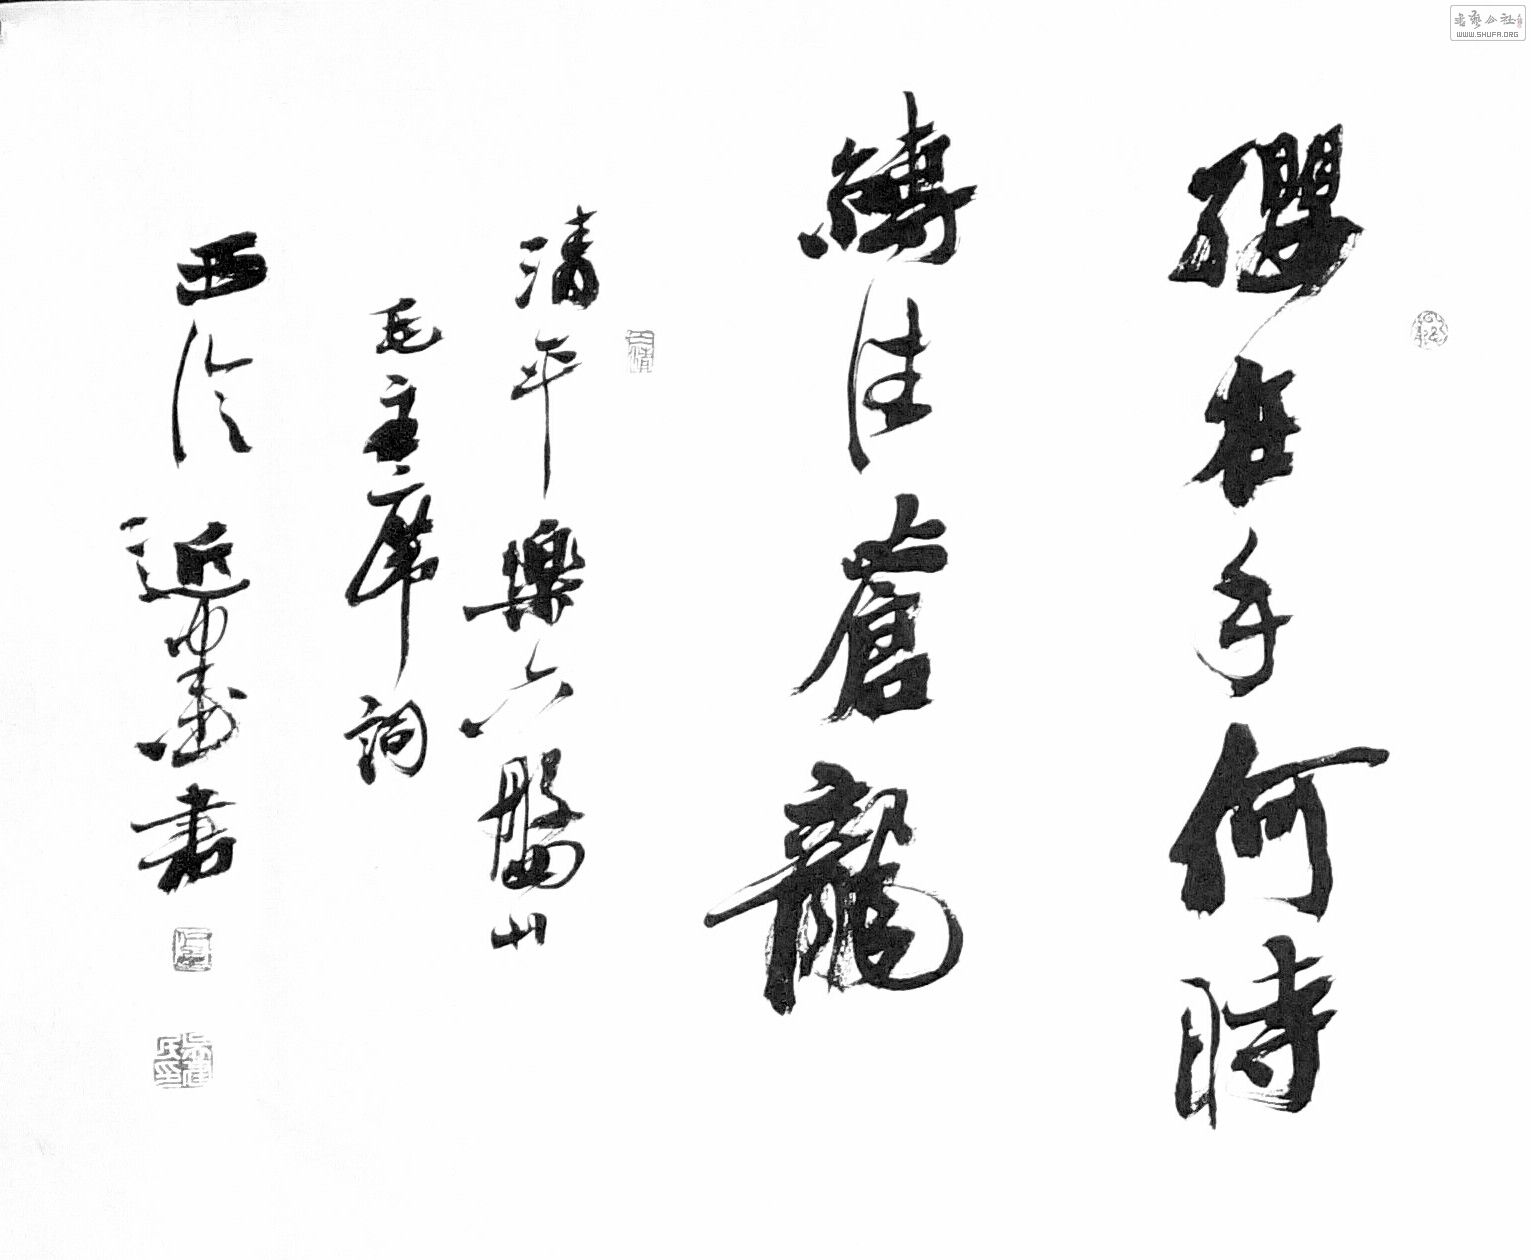 纓在手何時
縛住蒼龍
清平樂六盤山
毛主席詞
西泠 書
書藝公社
WWW.SHUFA.ORG